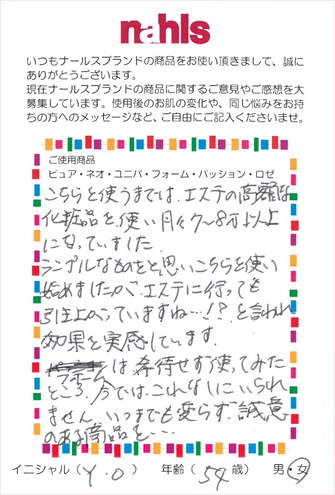 nahls
いつもナールスブランドの商品をお使い頂きまして、誠に
ありがとうございます。
現在ナールスブランドの商品に関するご意見やご感想を大
募集しています。使用後のお肌の変化や、同じ悩みをお持
ちの方へのメッセージなど、ご自由にご記入くださいませ。
ご使用商品
ピュア・ネオ・ユニバ・フォーム・パッション・ロゼ
こちらを使うまでは、エステの高額な
化粧品を使い月々7〜8万以上
になっていました。
シンプルなものをと思いこちらを使い
始めましたが、エステに行っても
引上がっていますね…!?と言われ
効果を実感しています。
は期待せず使ってみた
ところ、今では、これなしにいられ
ません。いつまでも変らず、誠意
のある商品を…
イニシャル（Y.O） 年齢（54歳） 男・女